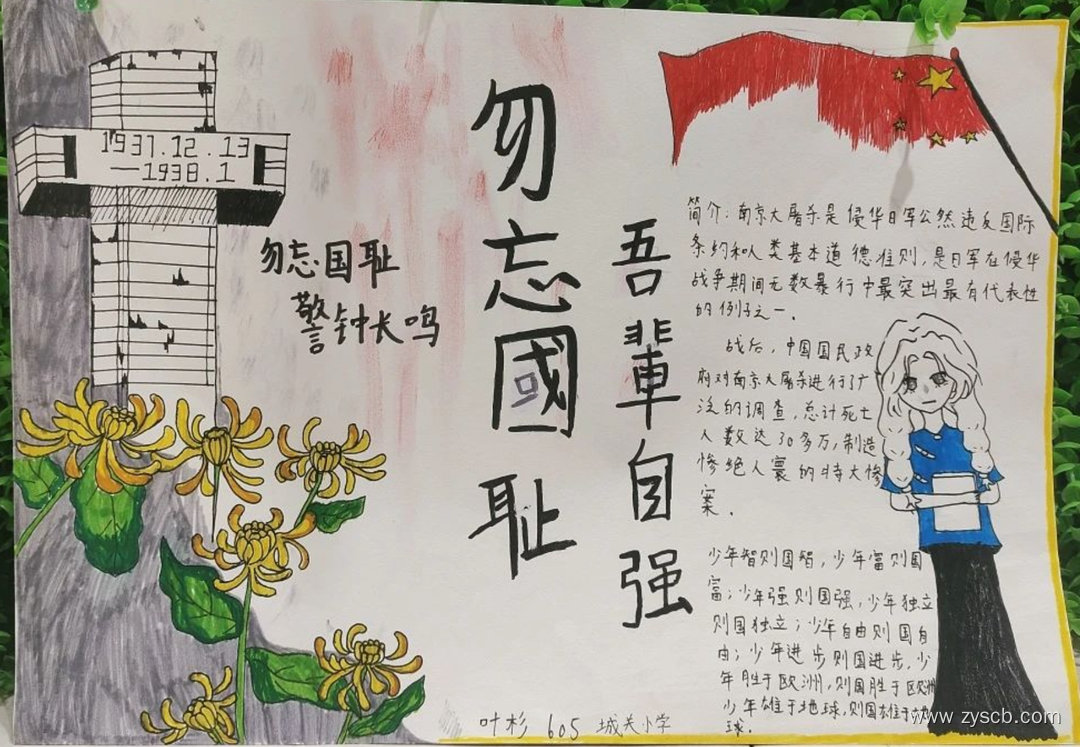 1937.12.13
—1938.1
勿忘国耻
警钟长鸣
勿忘國耻
吾辈自强
简介:南京大屠杀是侵华日军公然违反国际
条约和人类基本道德准则,是日军在侵华
战争期间无数暴行中最突出最有代表性
的例子之一.
战后,中国国民政
府对南京大屠杀进行了广
泛的调查,总计死亡
人数达30多万,制造
惨绝人寰的特大惨
案.
少年智则国智,少年富则国
富;少年强则国强,少年独立
则国独立;少年自由则国自
由;少年进步则国进步,少
年胜于欧洲,则国胜于欧洲
少年雄于地球,则国雄于地
球.
叶杉 605 城关小学
www.zyscb.com